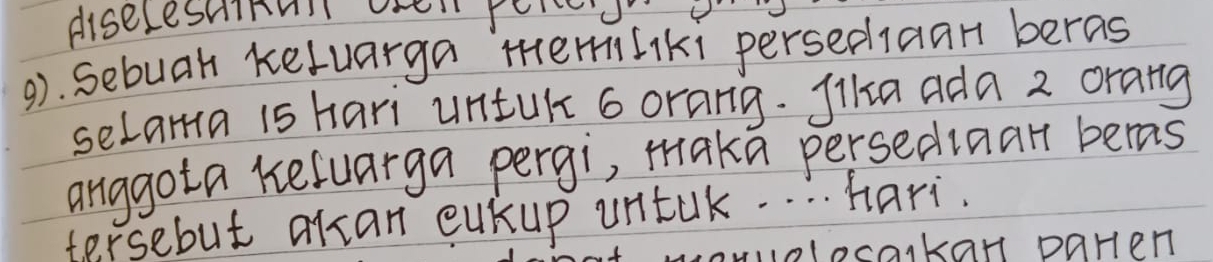 diselesaikan oleh
9). Sebuah keluarga memiliki persediaan beras
selama 15 hari untuk 6 orang. Jika ada 2 orang
anggota keluarga pergi, maka persediaan beras
tersebut akan cukup untuk .... hari.
dapat menyelesaikan panen